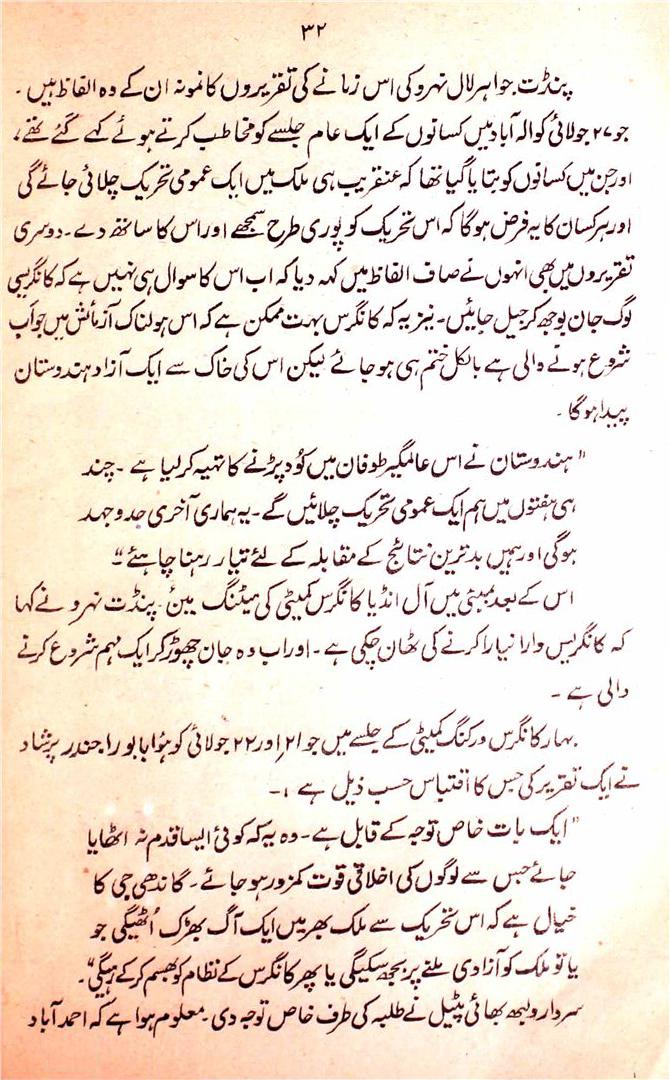 ۳۲
پنڈت جواہر لال نہرو کی اس زمانے کی تقریروں کا نمونہ ان کے وہ الفاظ ہیں ۔
جو ۲۷ جولائی کو الہ آباد میں کسانوں کے ایک عام جلسے کو مخاطب کرتے ہوئے کہے گئے تھے،
اور جن میں کسانوں کو بتایا گیا تھا کہ عنقریب ہی ملک میں ایک عمومی تحریک چلائی جائے گی
اور ہر کسان کا یہ فرض ہوگا کہ اس تحریک کو پوری طرح سمجھے اور اس کا ساتھ دے۔ دوسری
تقریروں میں بھی انہوں نے صاف الفاظ میں کہہ دیا کہ اب اس کا سوال ہی نہیں ہے کہ کانگریسی
لوگ جان بوجھ کر جیل جائیں۔ نیز یہ کہ کانگرس بہت ممکن ہے کہ اس ہولناک آزمائش میں جو اَب
شروع ہونے والی ہے بالکل ختم ہی ہو جائے لیکن اس کی خاک سے ایک آزاد ہندوستان
پیدا ہوگا ۔
"ہندوستان نے اس عالمگیر طوفان میں کُود پڑنے کا تہیہ کر لیا ہے ۔ چند
ہی ہفتوں میں ہم ایک عمومی تحریک چلائیں گے۔ یہ ہماری آخری جدوجہد
ہوگی اور ہمیں بدترین نتائج کے مقابلہ کے لئے تیار رہنا چاہئے"۔
اس کے بعد بمبئی میں آل انڈیا کانگرس کمیٹی کی میٹنگ میں پنڈت نہرو نے کہا
کہ کانگریس وارا نیارا کرنے کی ٹھان چکی ہے ۔ اور اب وہ جان چھوڑ کر ایک مہم شروع کرنے
والی ہے ۔
بہار کانگرس ورکنگ کمیٹی کے جلسے میں جو ۲۱؍ اور ۲۲ جولائی کو ہُوا بابو راجندر پرشاد
نے ایک تقریر کی جس کا اقتباس حسب ذیل ہے :۔
"ایک بات خاص توجہ کے قابل ہے۔ وہ یہ کہ کوئی ایسا قدم نہ اٹھایا
جائے جس سے لوگوں کی اخلاقی قوت کمزور ہو جائے۔ گاندھی جی کا
خیال ہے کہ اس تحریک سے ملک بھر میں ایک آگ بھڑک اُٹھیگی جو
یا تو ملک کو آزادی ملنے پر بجھ سکیگی یا پھر کانگرس کے نظام کو بھسم کر کے رہیگی"۔
سردار ولبھ بھائی پٹیل نے طلبہ کی طرف خاص توجہ دی۔ معلوم ہوا ہے کہ احمد آباد